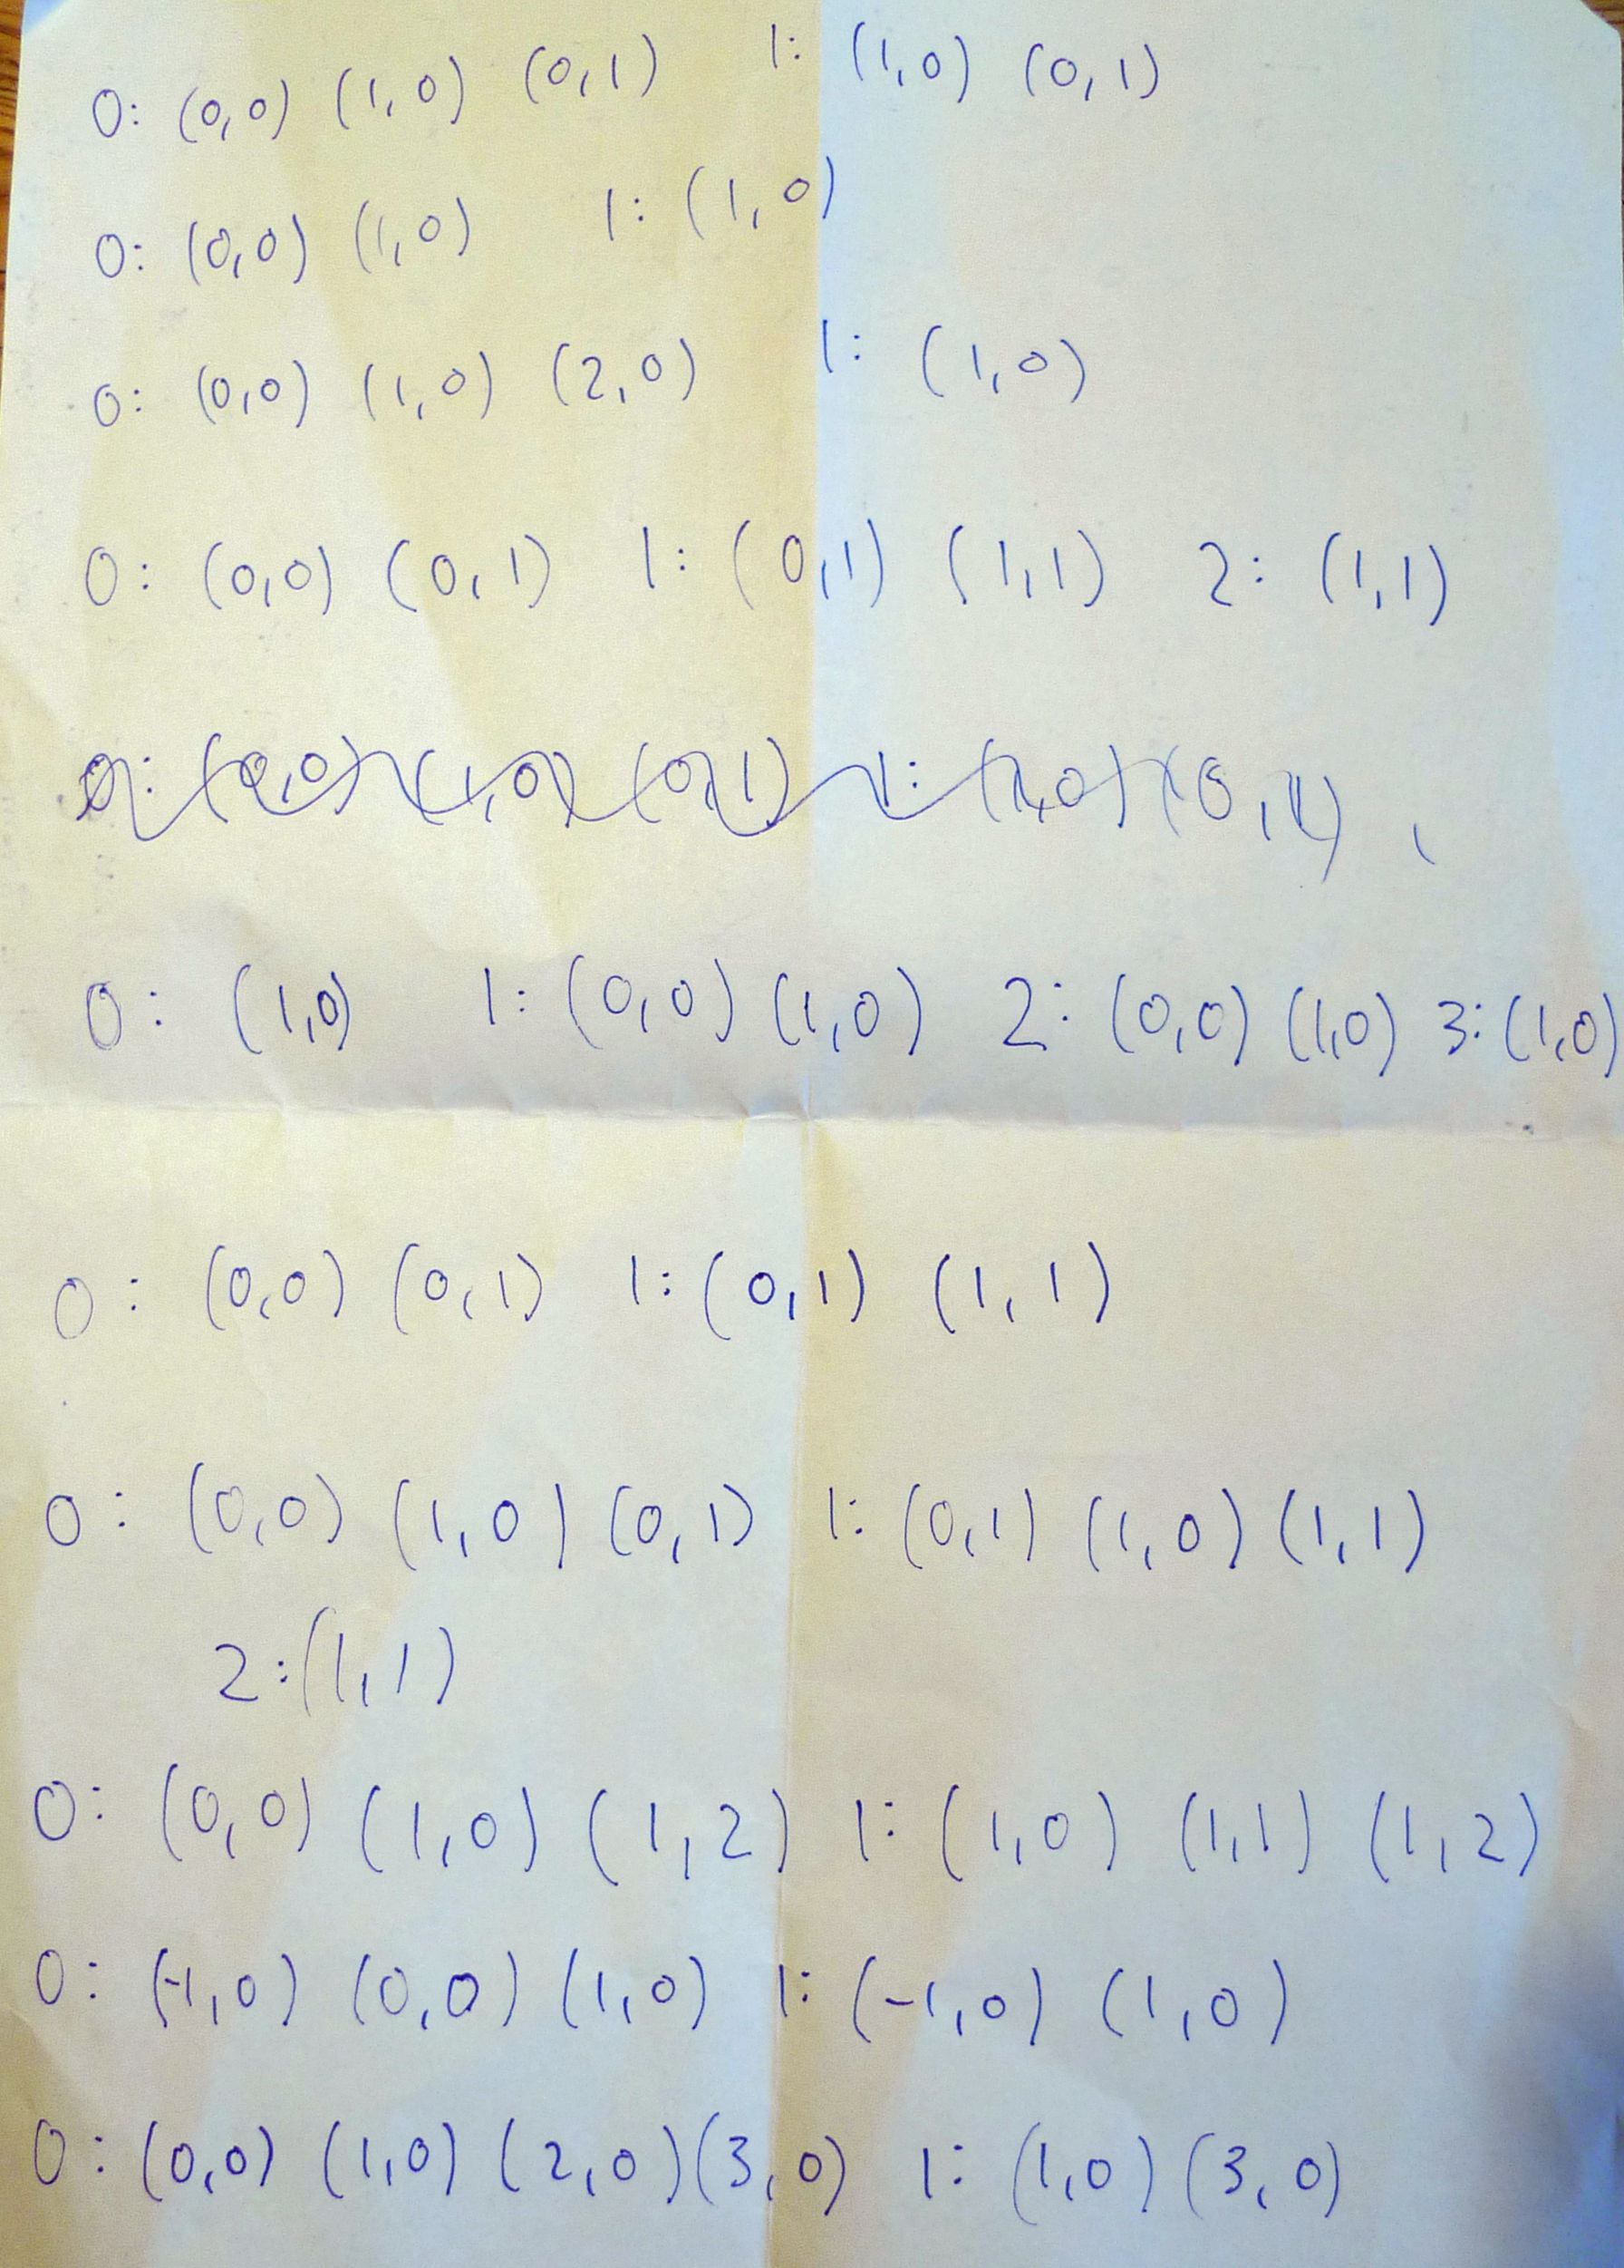 0: (0,0) (1,0) (0,1) 1: (1,0) (0,1)
0: (0,0) (1,0) 1: (1,0)
0: (0,0) (1,0) (2,0) 1: (1,0)
0: (0,0) (0,1) 1: (0,1) (1,1) 2: (1,1)
0: (0,0) (1,0) (0,1) 1: (1,0) (0,1)
0: (1,0) 1: (0,0) (1,0) 2: (0,0) (1,0) 3: (1,0)
0: (0,0) (0,1) 1: (0,1) (1,1)
0: (0,0) (1,0) (0,1) 1: (0,1) (1,0) (1,1)
2: (1,1)
0: (0,0) (1,0) (1,2) 1: (1,0) (1,1) (1,2)
0: (-1,0) (0,0) (1,0) 1: (-1,0) (1,0)
0: (0,0) (1,0) (2,0) (3,0) 1: (1,0) (3,0)